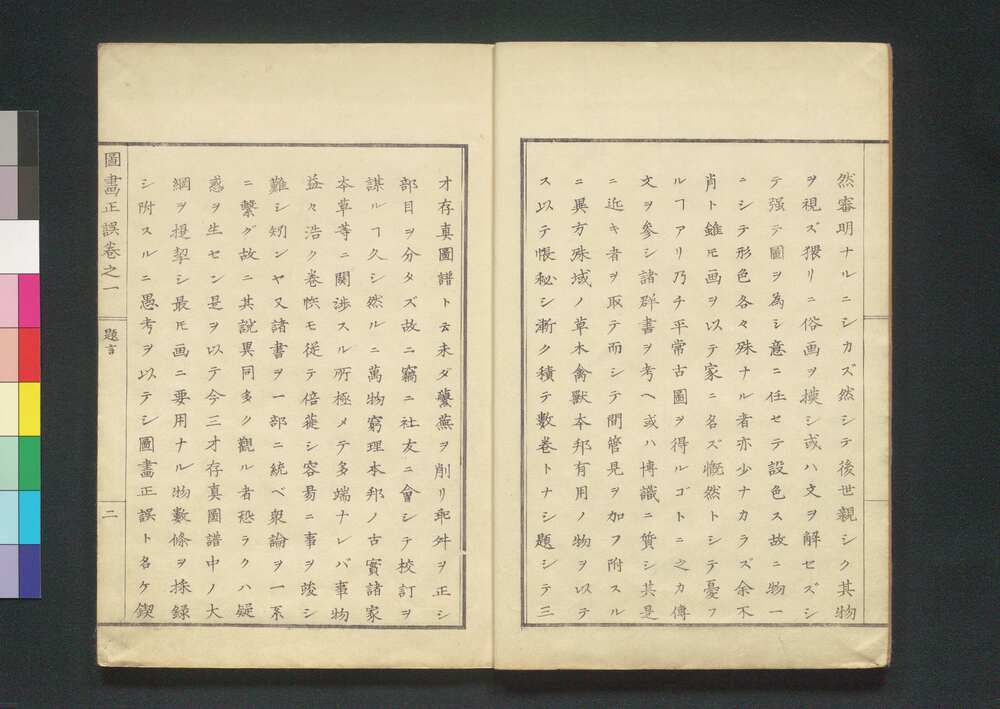 然審明ナルニシカズ然シテ後世親シク其物
ヲ視ズ猥リニ俗画ヲ摸シ或ハ文ヲ解セズシ
テ强テ圖ヲ為シ意ニ任セテ設色ス故ニ物一
ニシテ形色各々殊ナル者亦少ナカラズ余不
肖ト雖モ画ヲ以テ家ニ名ズ慨然トシテ憂フ
ルヿアリ乃チ平常古圖ヲ得ルゴトニ之カ傳
文ヲ參シ諸群書ヲ考ヘ或ハ博識ニ質シ其是
ニ近キ者ヲ取テ而シテ間管見ヲ加フ附スル
ニ異方殊域ノ草木禽獸本邦有用ノ物ヲ以テ
ス以テ帳秘シ漸ク積テ數卷トナシ題シテ三
才存真圖譜ト云未ダ蘩蕪ヲ削リ乖舛ヲ正シ
部目ヲ分タズ故ニ竊ニ社友ニ會シテ校訂ヲ
謀ルヿ久シ然ルニ萬物窮理本邦ノ古實諸家
本草等ニ関渉スル所極メテ多端ナレバ事物
益々浩ク卷帙モ從テ倍蓰シ容易ニ事ヲ竣シ
難シ矧ンヤ又諸書ヲ一部ニ統ベ衆論ヲ一系
ニ繫ダ故ニ其説異同多ク觀ル者恐ラクハ疑
惑ヲ生セン是ヲ以テ今三才存真圖譜中ノ大
綱ヲ提挈シ最モ画ニ要用ナル物數條ヲ採録
シ附スルニ愚考ヲ以テシ圖畵正誤ト名ケ鍥
圖畵正誤卷之一
題言
二